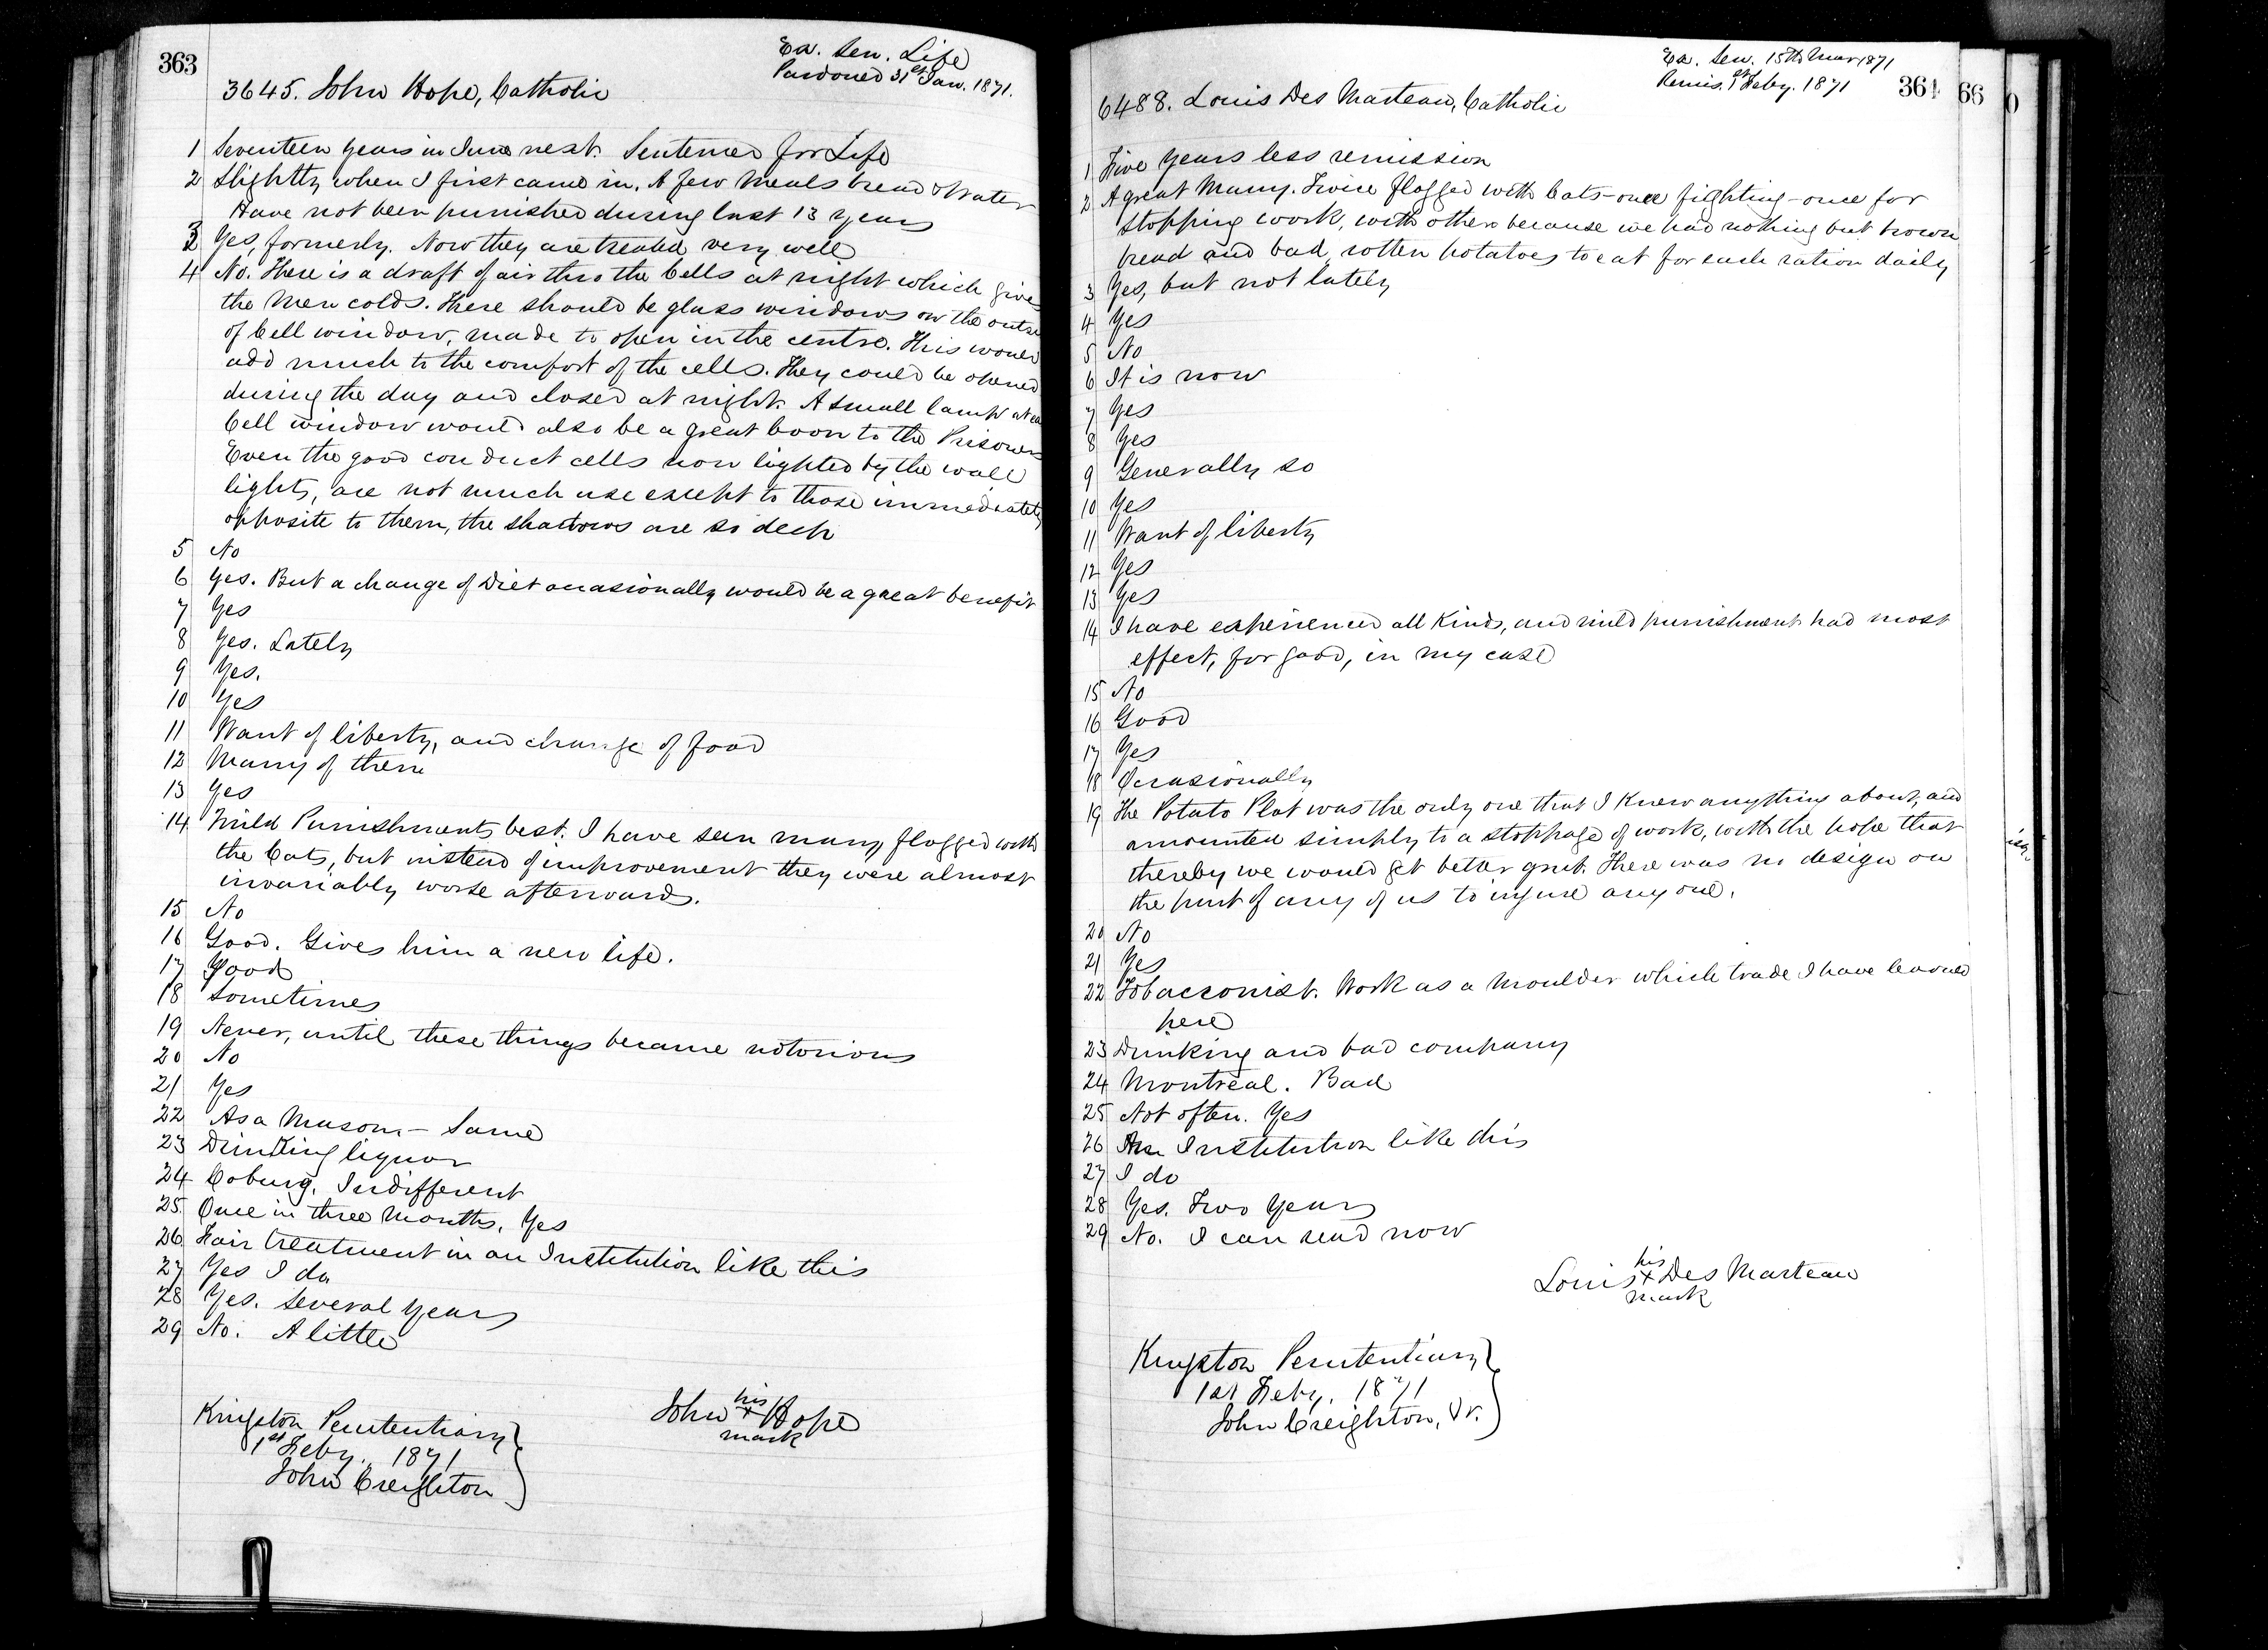 363
Ex. Sen. Life
Pardoned 31st Jan. 1871.
3645. John Hope, Catholic
1 Seventeen years in June next. Sentenced for Life
2 Slightly when I first came in. A few Meals bread & Water
Have not been punished during last 13 years
3 Yes, formerly. Now they are treated very well
4 No. There is a draft of air thro the Cells at night which gives
the Men colds. There should be glass windows on the outs
of Cell window, made to open in the centre. This would
add much to the comfort of the cells. They could be opened
during the day and closed at night. A small lamp at ea
Cell window would also be a great boon to the Prisoners
Even the good conduct cells now lighted by the wall
lights, are not much use except to those immediately
opposite to them, the shadows are so deep
5 No
6 Yes. But a change of Diet occasionally would be a great benefit
7 Yes
8 Yes. Lately
9 Yes.
10 Yes
11 Want of liberty, and change of food
12 Many of them
13 Yes
14 Mild Punishments best. I have seen many flogged with
the Cats, but instead of improvement they were almost
invariably worse afterwards.
15 No
16 Good. Gives him a new life.
17 Good
18 Sometimes
19 Never, until these things became notorious
20 No
21 Yes
22 As a Mason – Same
23 Drinking liquor
24 Coburg. Indifferent
25 Once in three Months. Yes
26 Fair treatment in an Institution like this
27 Yes I do
28 Yes. Several Years
29 No. A little
his
John + Hope
mark
Kingston Penitentiary
1st Feby. 1871
John Creighton
Ex. Sen. 15th Mar 1871
Remis. 1st Feby. 1871
364 66 0
6488. Louis Des Marteau, Catholic
1 Five Years less remission
2 A great Many. Twice flogged with Cats – once fighting – once for
stopping work, with others because we had nothing but brown
bread and bad, rotten potatoes to eat for each ration daily
3 Yes, but not lately
4 Yes
5 No
6 It is now
7 Yes
8 Yes
9 Generally so
10 Yes
11 Want of liberty
12 Yes
13 Yes
14 I have experienced all Kinds, and mild punishment had most
effect, for good, in my case
15 No
16 Good
17 Yes
18 Occasionally
19 The Potato Plot was the only one that I Knew anything about, and
amounted simply to a stoppage of work, with the hope that
thereby we would get better grub. There was no design on
the part of any of us to injure any one.
20 No
21 Yes
22 Tobacconist. Work as a Moulder which trade I have learned
here
23 Drinking and bad company
24 Montreal. Bad
25 Not often. Yes
26 An Institution like this
27 I do
28 Yes. Two Years
29 No. I can read now
his
Louis + Des Marteau
mark
Kingston Penitentiary
1st Feby. 1871
John Creighton, Jr.